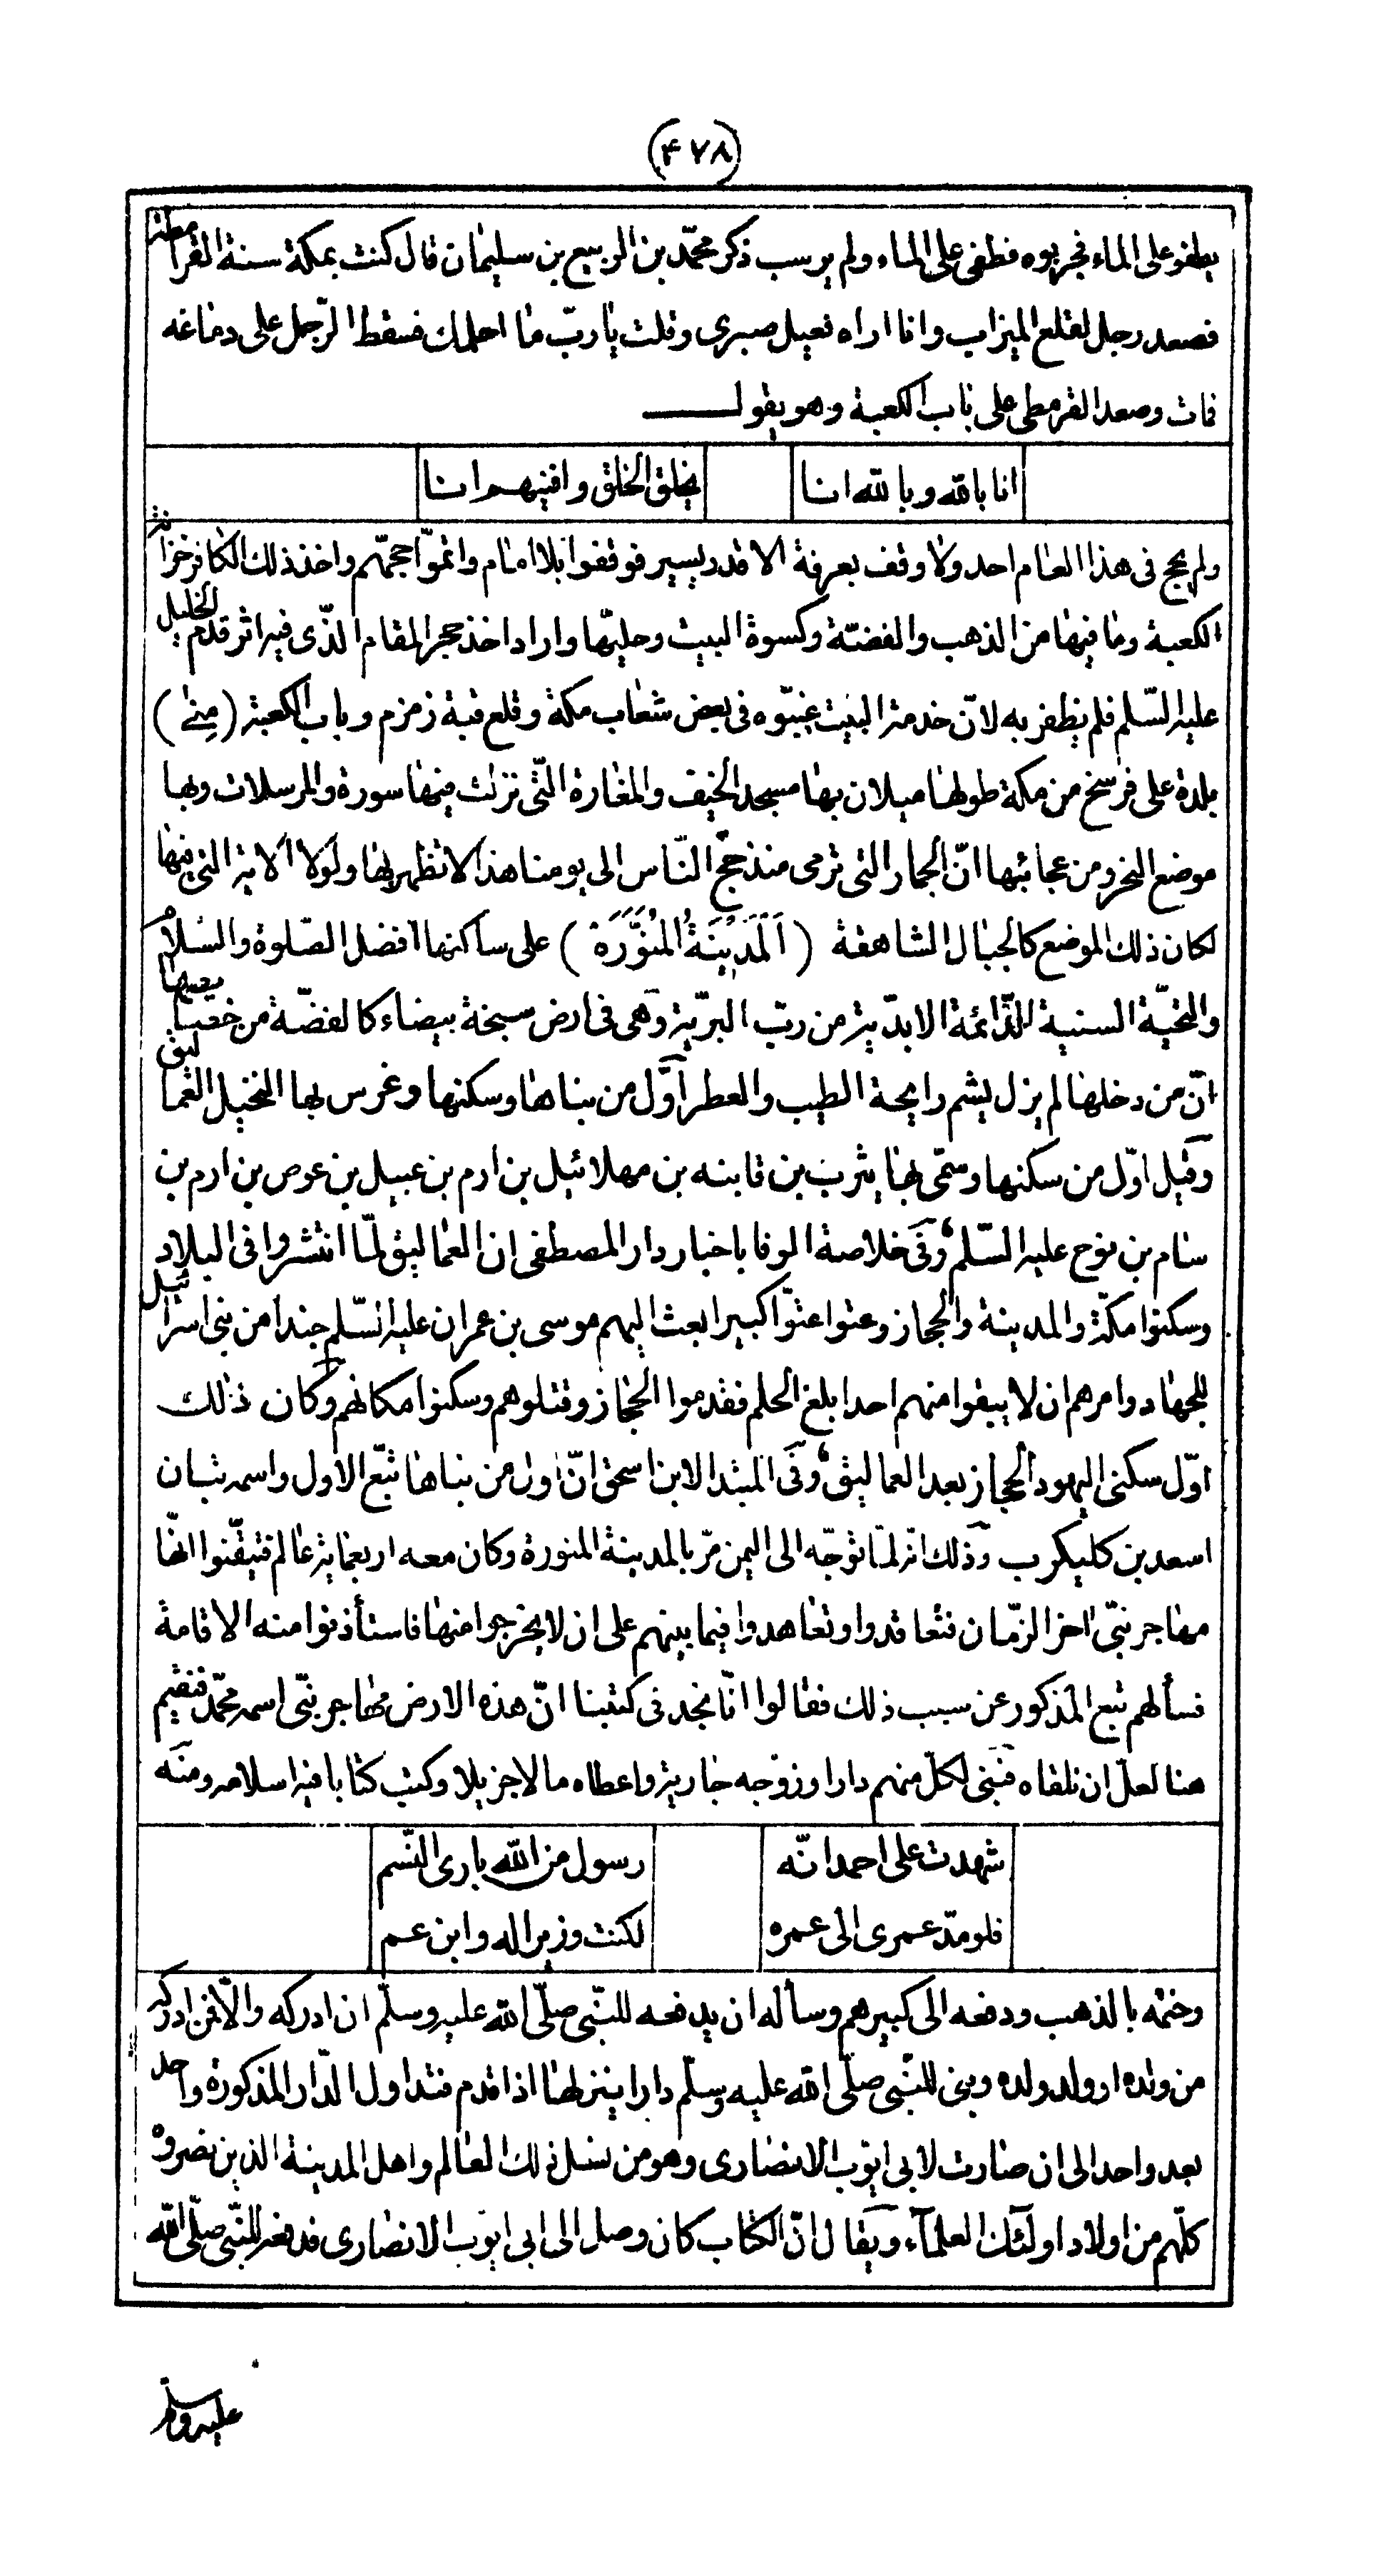 (٤٧٨)
يطفو على الماء فجربوه فطفى على الماء ولم يرسب ذكر محمّد بن الربيع بن سليمان قال كنت بمكة سنة القرامطة
فصعد رجل لقلع الميزاب وانا اراه فعيل صبرى وقلت يا ربّ ما احلمك فسقط الرّجل على دماغه
فمات وصعد القرمطى على باب الكعبة وهو يقول
انا بالله وبالله انا
يخلق الخلق وافنيهم انا
ولم يحج فى هذا العام احد ولا وقف بعرفة الا قدر يسير فوقفوا بلا امام واتموّا حجهّم واخذ ذلك الكافر خزائن
الكعبة وما فيها من الذهب والفضّة وكسوة البيت وحليّها واراد اخذ حجر المقام الذّى فيه اثر قدم الخليل
عليه السّلم فلم يظفر به لانّ خدمة البيت غيبّوه فى بعض شعاب مكة وقلع قبة زمزم وباب الكعبة (مِنىٰ)
بلدة على فرسخ من مكة طولها ميلان بها مسجد الخيف والمغارة التّى نزلت فيها سورة والمرسلات وبها
موضع النحر ومن عجائبها انّ الجمار التى ترمى منذ حجّ النّاس الى يومنا هذا لا تظهر بها ولولا الاية التى فيها
لكان ذلك الموضع كالجبال الشاهقة (اَلْمَدِينَةُ المُنَوَّرَة) على ساكنها افضل الصّلوة والسّلام
والتحيّة السنية الدّائمة الابدّية من ربّ البريّة وهى فى ارض سبخة بيضاء كالفضّة من خصايصها
انّ من دخلها لم يزل يشم رايحة الطيب والعطر اوّل من بناها وسكنها وغرس بها النخيل العماليق
وقيل اوّل من سكنها وسمّى بها يثرب بن قابنه بن مهلائيل بن ارم بن عبيل بن عوص بن ارم بن
سام بن نوح عليه السّلم وفى خلاصة الوفا باخبار دار المصطفى ان العماليق لمّا انتشروا فى البلاد
وسكنوا مكّة والمدينة والحجاز وعتوا عتوّا كبيرا بعث اليهم موسى بن عمران عليه السّلم جندا من بنى اسرائيل
للجهاد وامرهم ان لا يبقوا منهم احدا بلغ الحلم فقدموا الحجاز وقتلوهم وسكنوا مكانهم وكان ذلك
اوّل سكنى اليهود الحجاز بعد العماليق وفى المبتدا لابن اسحق انّ اول من بناها تبّع الاول واسمه تبان
اسعد بن كليكرب وذلك انه لمّا توجّه الى اليمن مرّ بالمدينة المنورة وكان معه اربعماية عالم فتيقّنوا انهّا
مهاجر نبّى اخر الزّمان فتعاقدوا وتعاهدوا فيما بينهم على ان لا يخرجوا منها فاستأذنوا منه الاقامة
فسألهم تبع المذكور عن سبب ذلك فقالوا انّا نجد فى كتبنا انّ هذه الارض مهاجر نبّى اسمه محمّد فنقيم
هنا لعلّ ان نلقاه فبنى لكلّ منهم دارا وزوّجه جارية واعطاه مالا جزيلا وكتب كتابا فيه اسلامه ومنه
شهدت على احمد انّه
رسول من الله بارى النّسم
فلو مدّ عمرى الى عمره
لكنت وزيرا له وابن عم
وختمه بالذهب ودفعه الى كبيرهم وسأله ان يدفعه للنبّى صلّى الله عليه وسلّم ان ادركه والّا فمن ادركه
من ولده او ولد ولده وبنى للنبّى صلّى الله عليه وسلّم دارا ينزلها اذا قدم فتداول الدّار المذكورة واحد
بعد واحد الى ان صارت لابى ايوّب الانصارى وهو من نسل ذلك العالم واهل المدينة الذين نصروه
كلّهم من اولاد اولئك العلمآء ويقال انّ الكتاب كان وصل الى ابى ايوب الانصارى فدفعه للنبّى صلّى الله
عليه وسلم